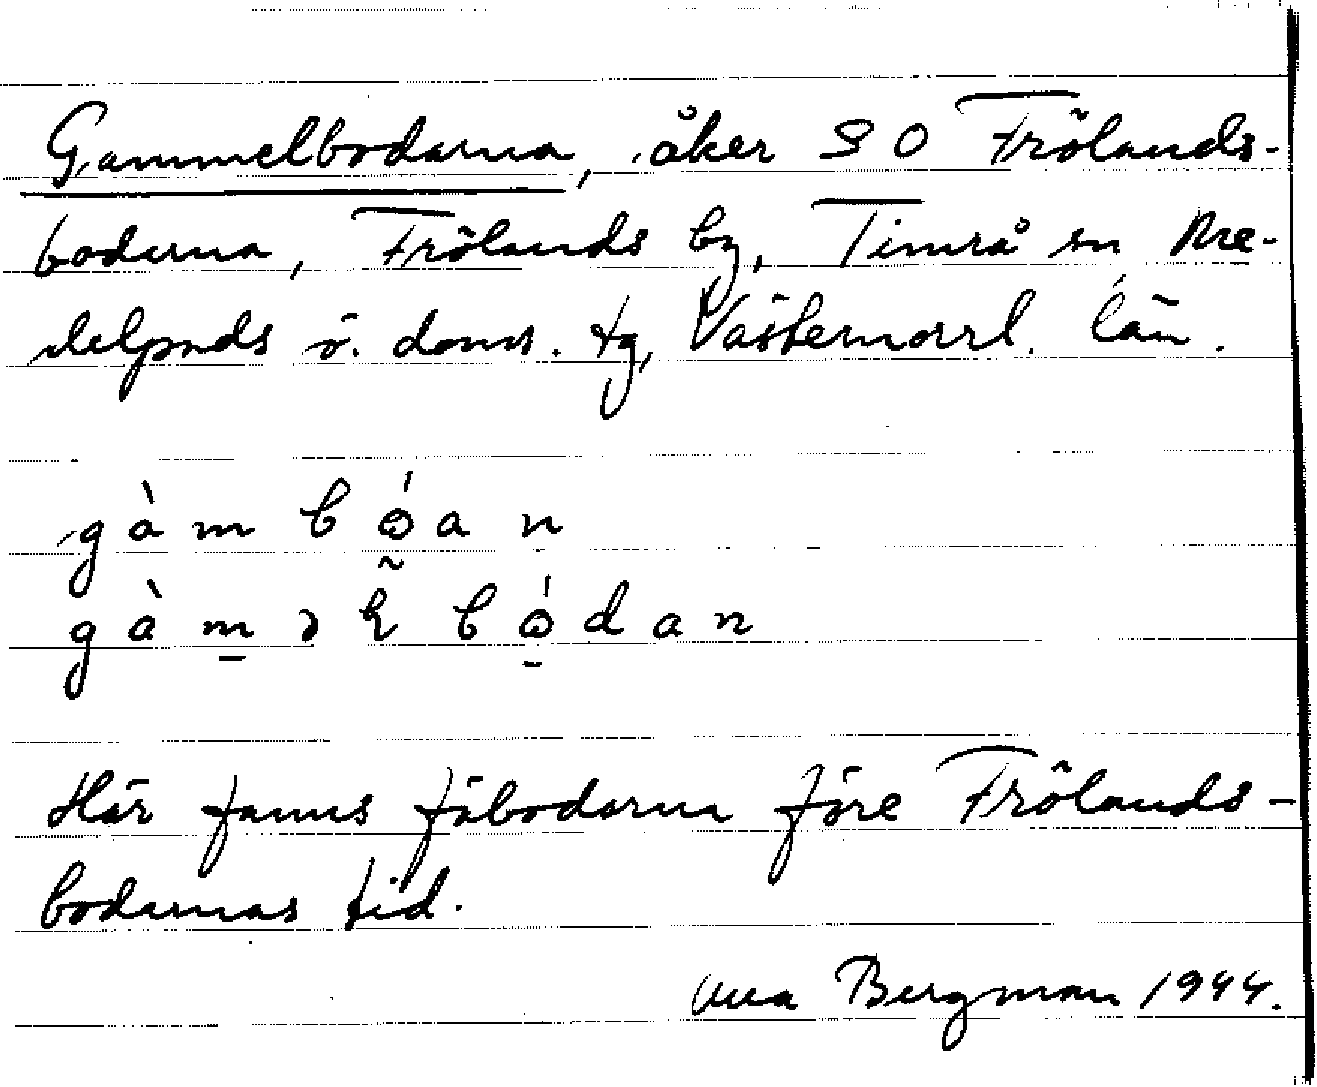 Gammelbodarna, åker SO Frölands-
bodarna, Frölands by, Timrå sn Me-
delpads ö. doms. tg, Västernorrl. län.
gàm bóan
gàməl bódan
Här fanns fäbodarna före Frölands-
bodarnas tid.
Bergman 1944.